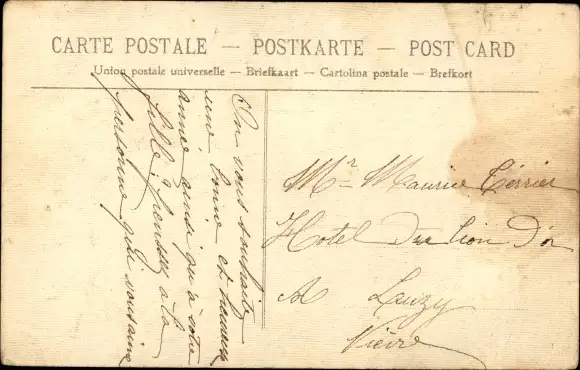 CARTE POSTALE — POSTKARTE — POST CARD
Union postale universelle — Briefkaart — Cartolina postale — Brefkort
On vous souhaite
une bonne et heureuse
année ainsi qu'à votre
fille, pensez à la
personne que
Mr Maurice
Hotel du lion D'or
A Luzy
Nièvre